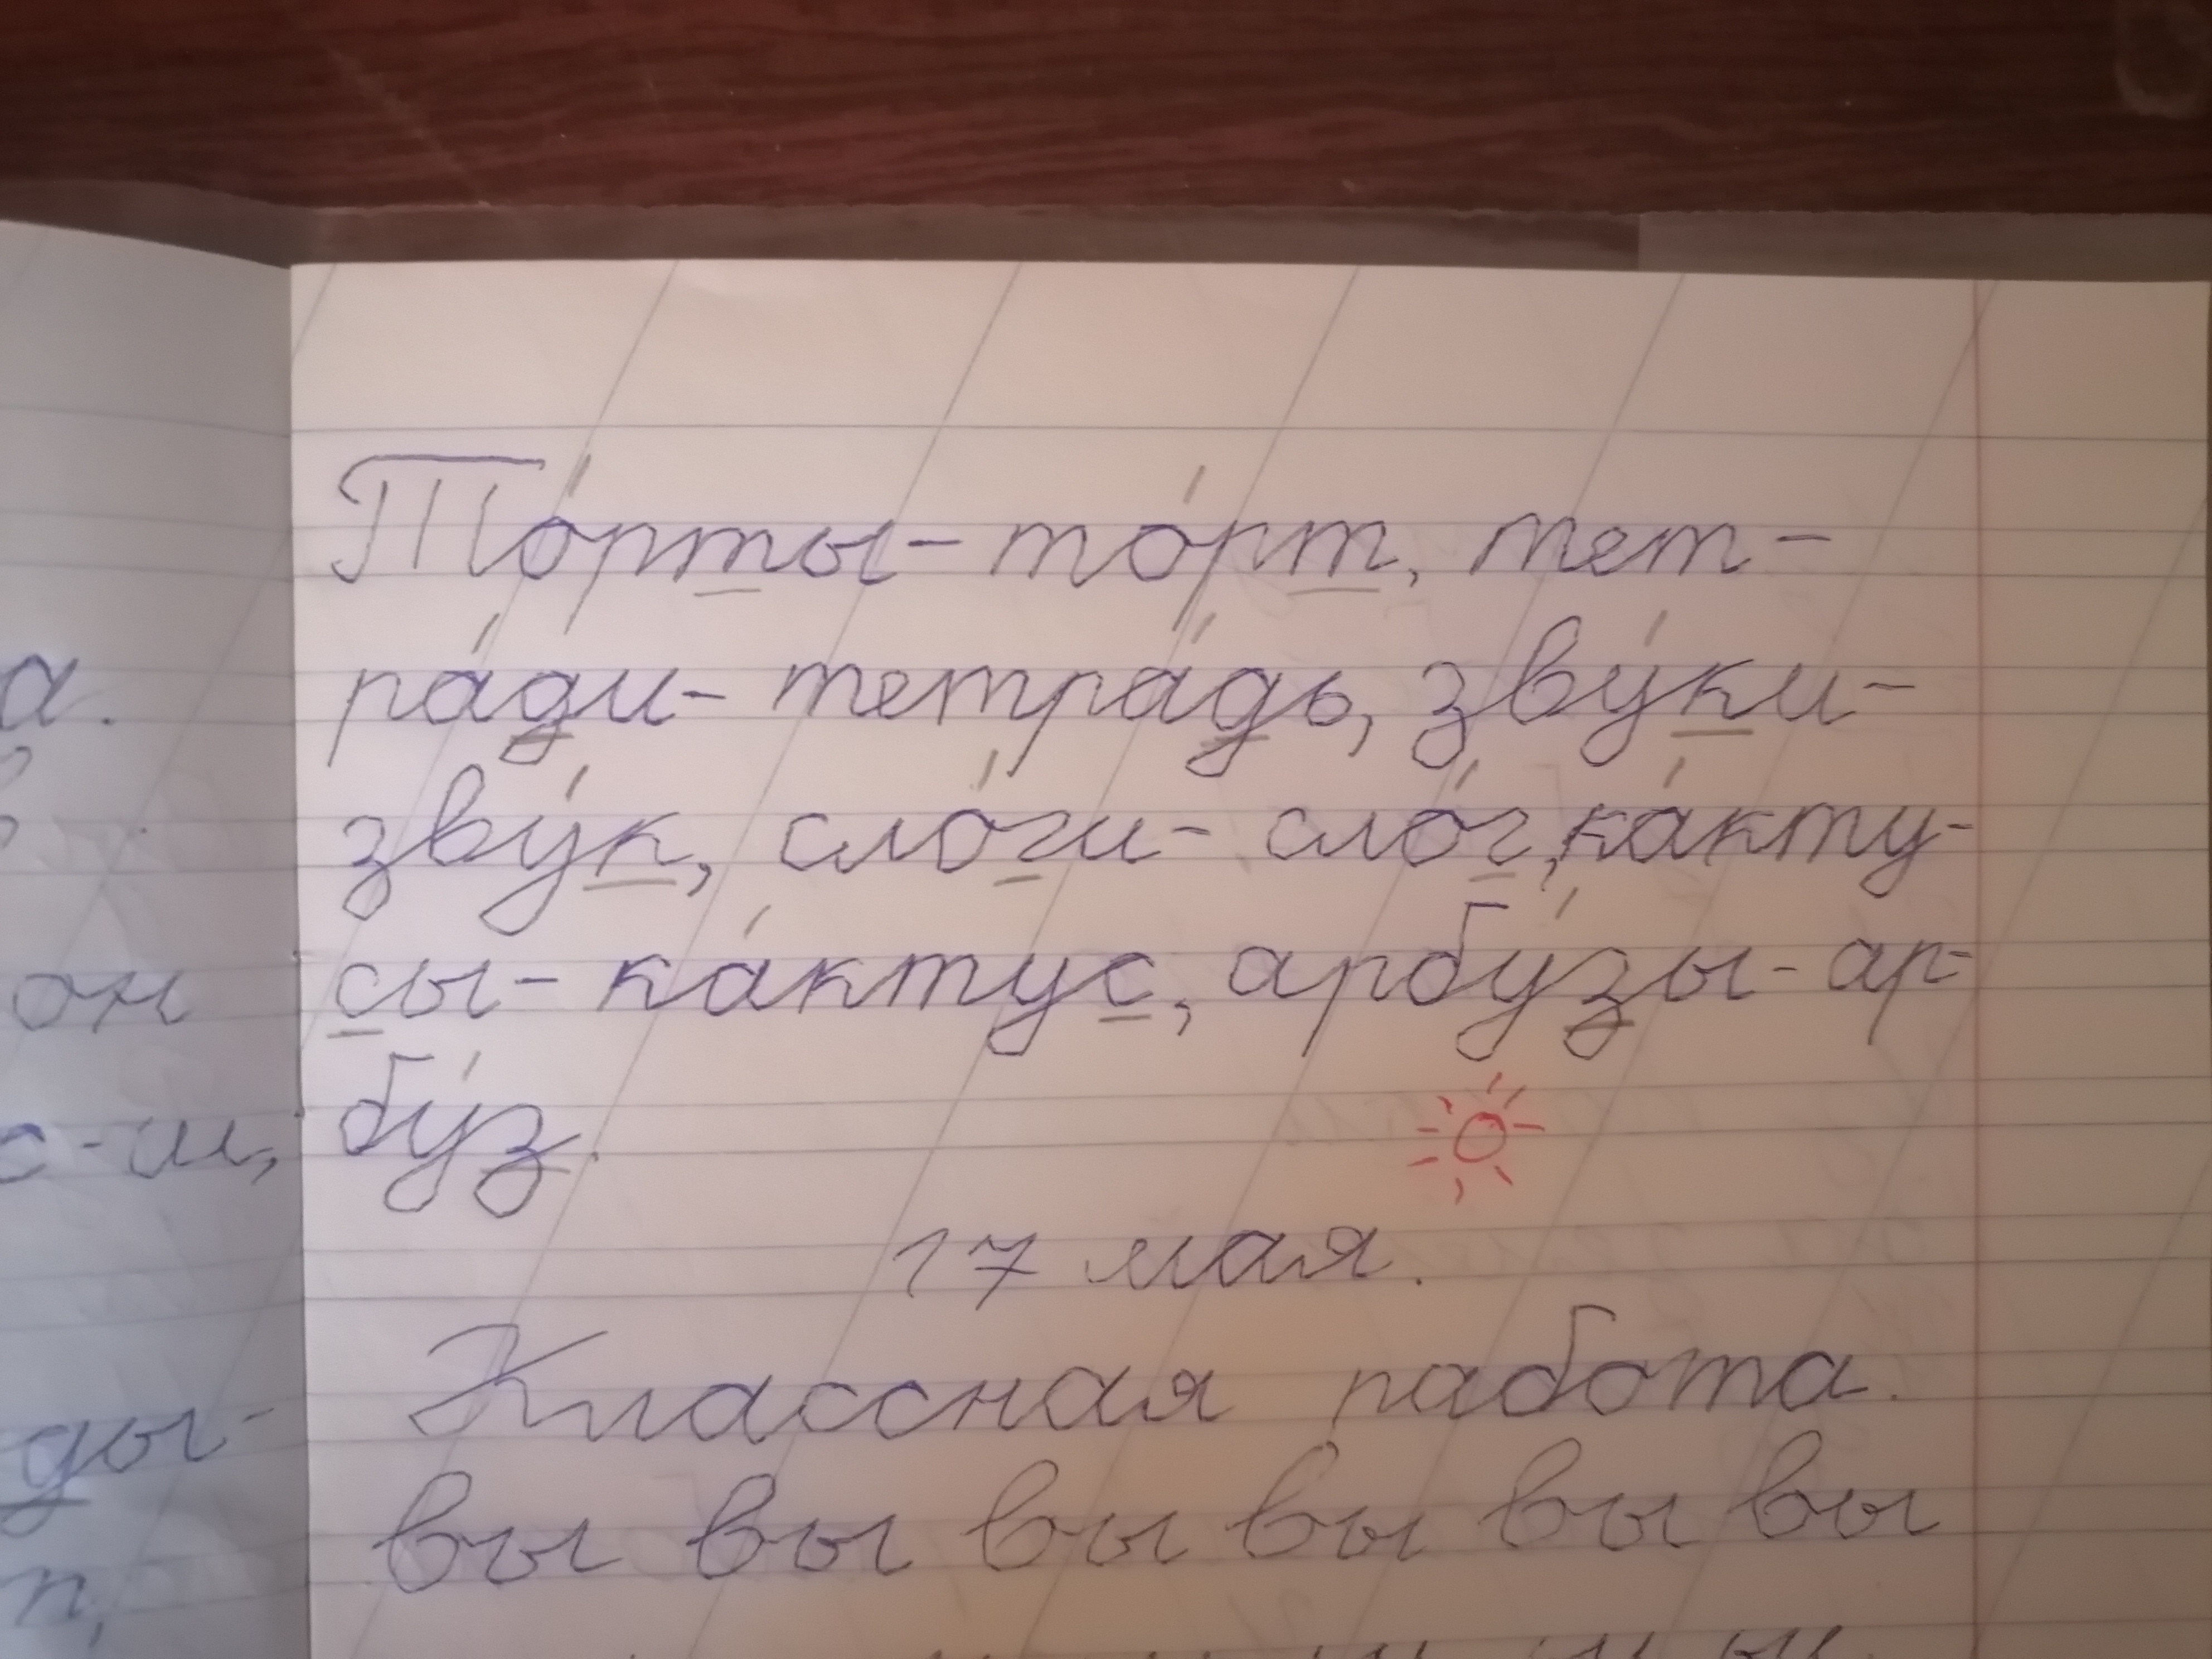 а.
То́рты - то́рт, тет-
ра́ди - тетра́дь, зву́ки -
зву́к, сло́ги - сло́г, ка́кту-
он
сы - ка́ктус, арбу́зы - ар-
с - ш,
бу́з.
17 мая.
Классная работа.
ды -
вы вы вы вы вы вы
п,